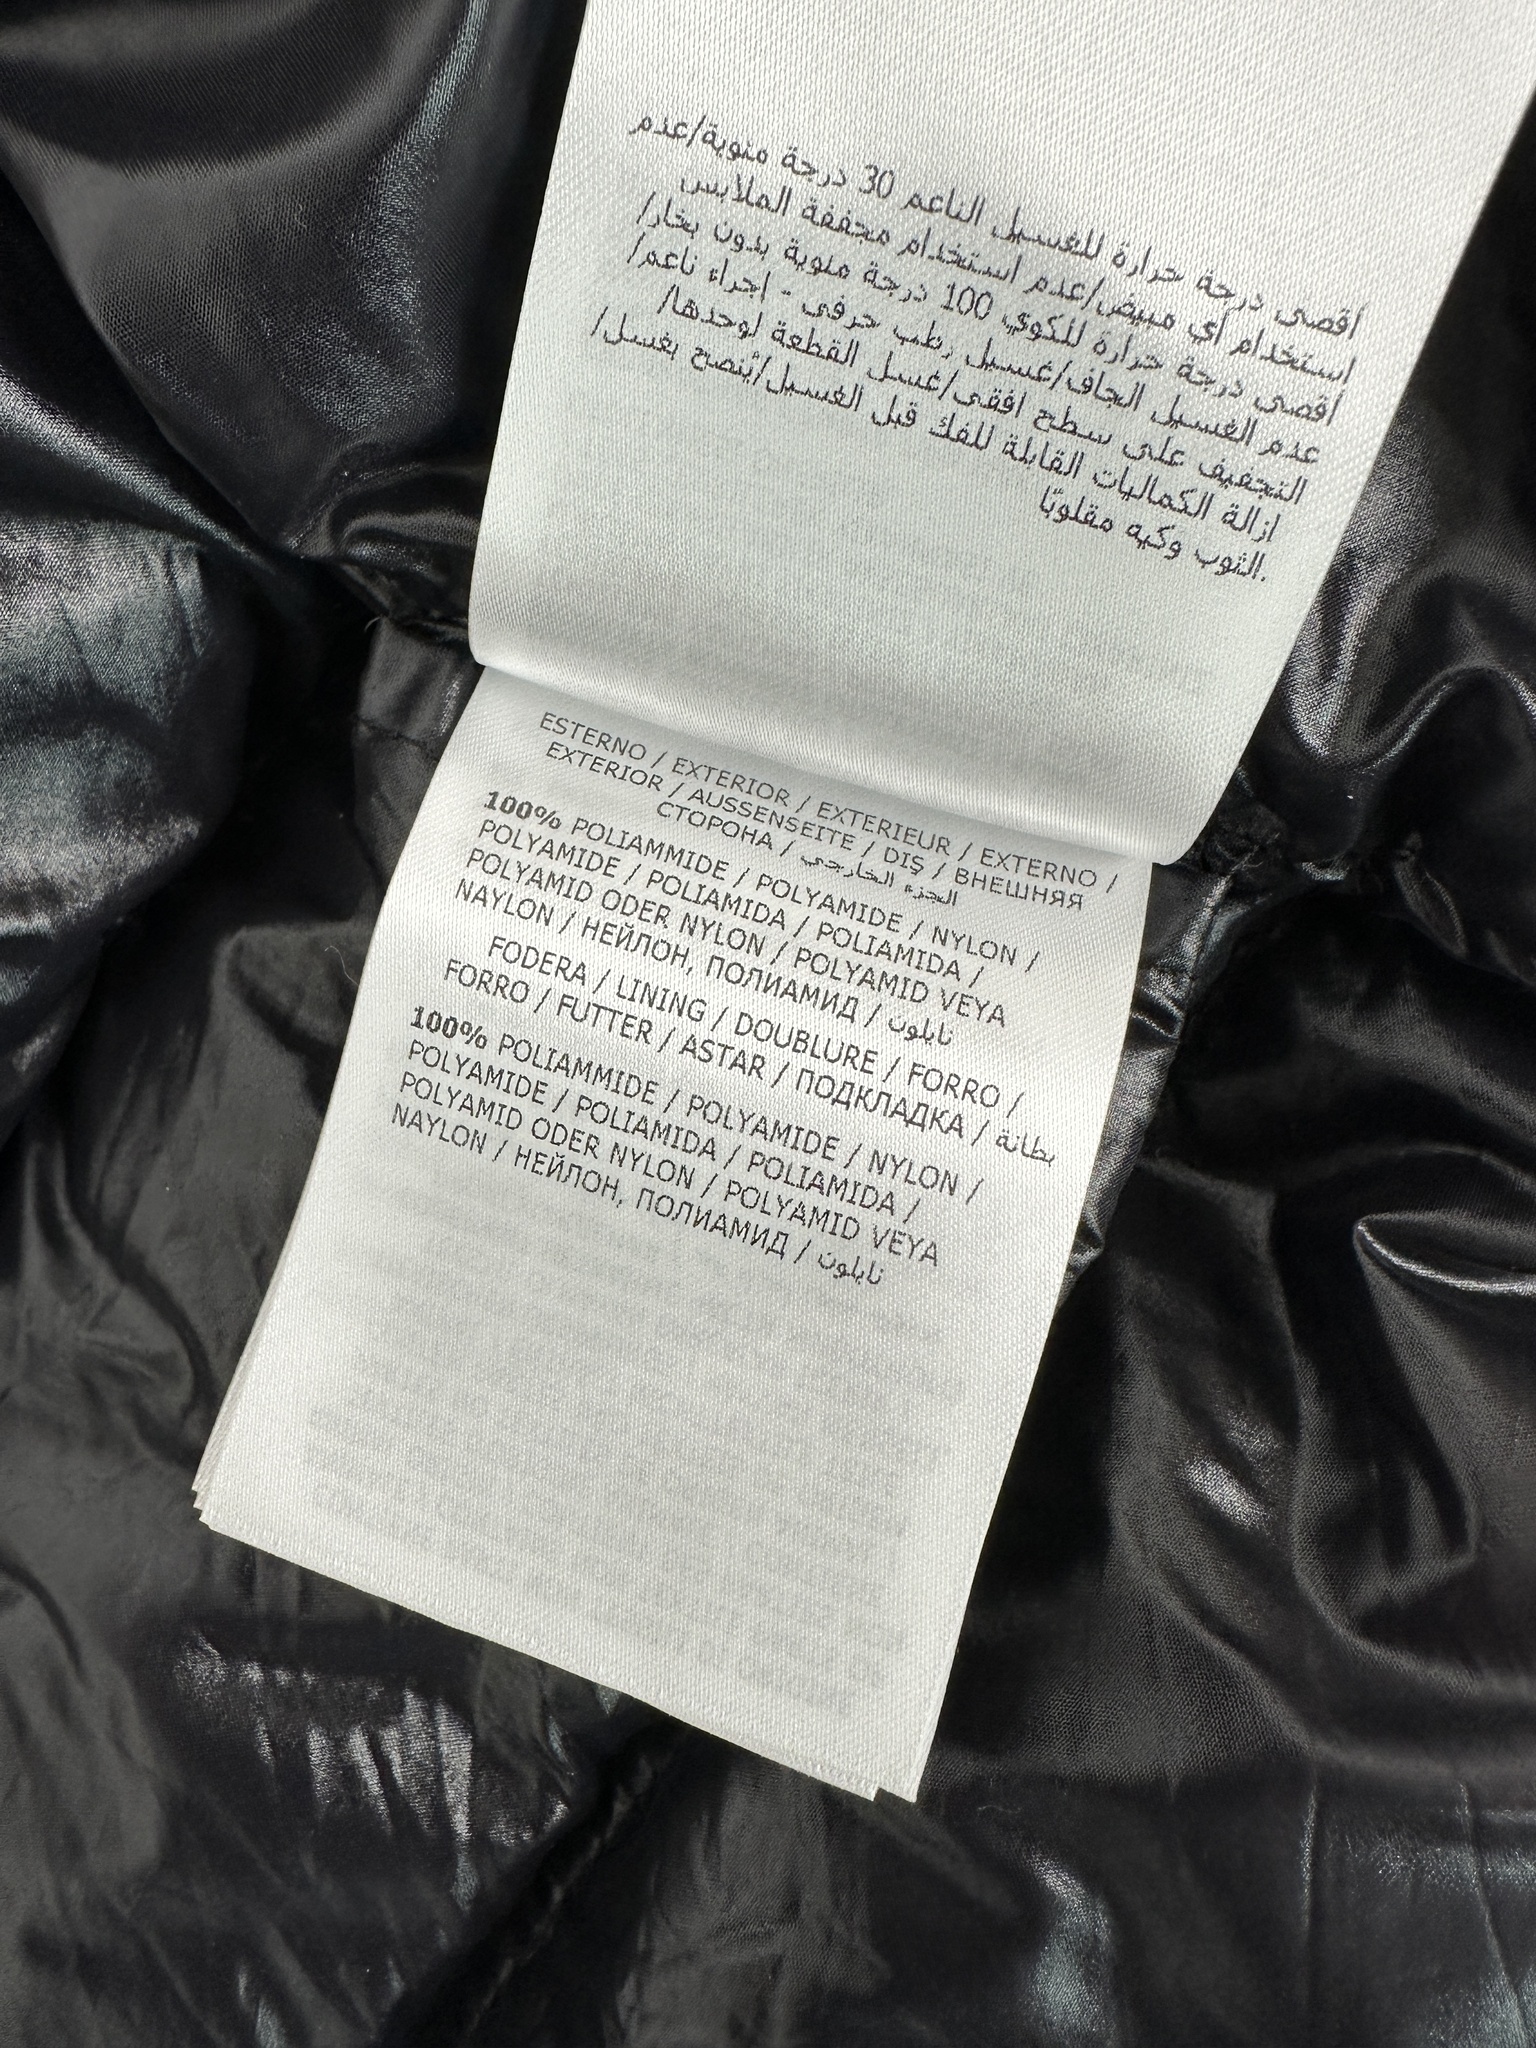 أقصى درجة حرارة للغسيل الناعم 30 درجة مئوية/عدم
استخدام أي مبيض/عدم استخدام مجففة الملابس
أقصى درجة حرارة للكوي 100 درجة مئوية بدون بخار/
عدم الغسيل الجاف/غسيل رطب حرفى - اجراء ناعم/
التجفيف على سطح افقى/غسل القطعة لوحدها/
ازالة الكماليات القابلة للفك قبل الغسيل/يُنصح بغسل/
الثوب وكيه مقلوبًا.
ESTERNO / EXTERIOR / EXTERIEUR / EXTERNO /
EXTERIOR / AUSSENSEITE / DIŞ / ВНЕШНЯЯ
СТОРОНА / الجزء الخارجي
100% POLIAMMIDE / POLYAMIDE / NYLON /
POLYAMIDE / POLIAMIDA / POLIAMIDA /
POLYAMID ODER NYLON / POLYAMID VEYA
NAYLON / НЕЙЛОН, ПОЛИАМИД / نايلون
FODERA / LINING / DOUBLURE / FORRO /
FORRO / FUTTER / ASTAR / ПОДКЛАДКА / بطانة
100% POLIAMMIDE / POLYAMIDE / NYLON /
POLYAMIDE / POLIAMIDA / POLIAMIDA /
POLYAMID ODER NYLON / POLYAMID VEYA
NAYLON / НЕЙЛОН, ПОЛИАМИД / نايلون